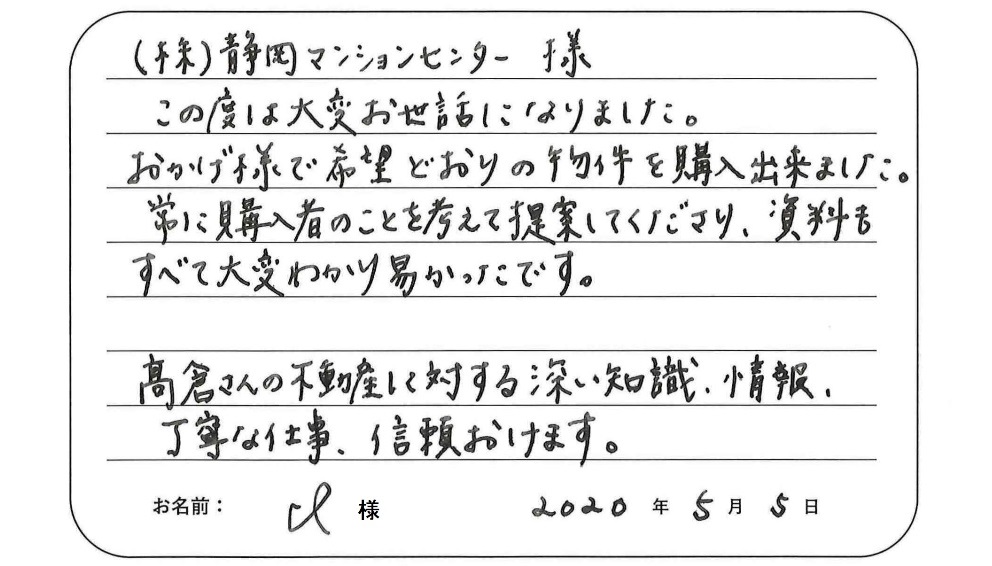 (株)静岡マンションセンター 様
この度は大変お世話になりました。
おかげ様で希望どおりの物件を購入出来ました。
常に購入者のことを考えて提案してくださり、資料も
すべて大変わかり易かったです。
髙倉さんの不動産に対する深い知識、情報、
丁寧な仕事、信頼おけます。
お名前: 様 2020 年 5 月 5 日